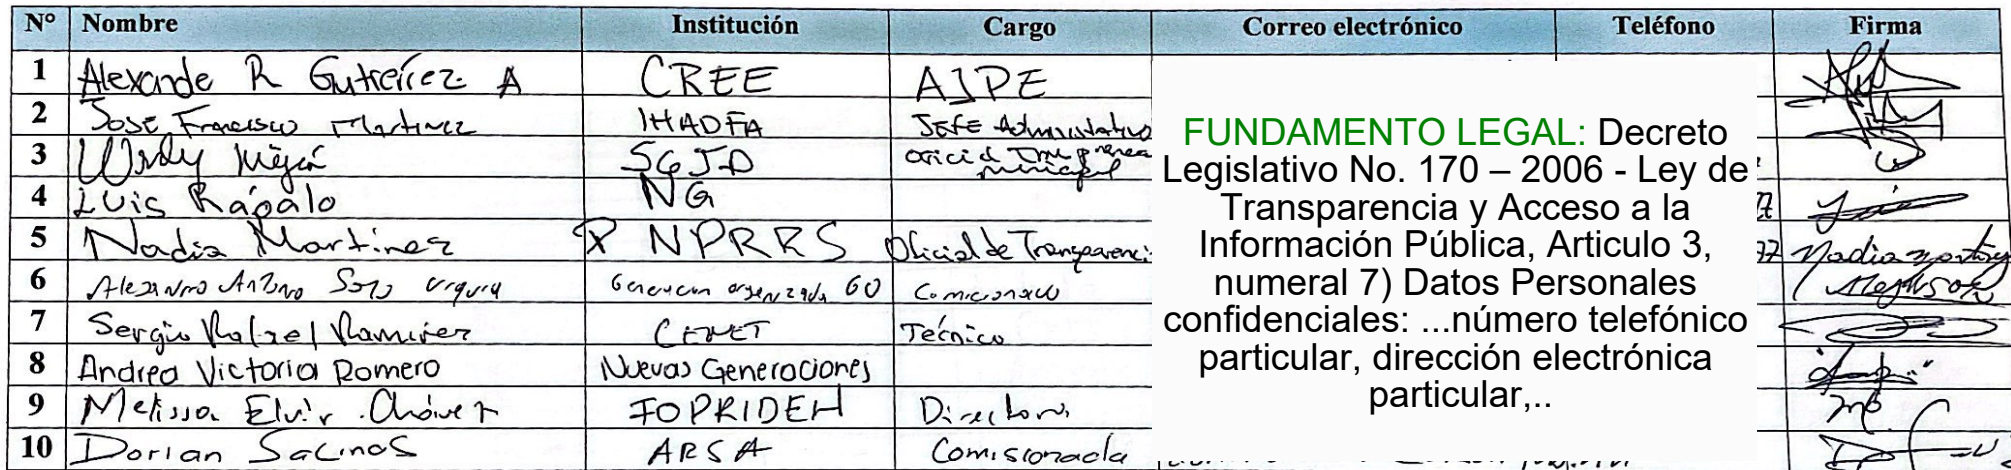 N° Nombre Institución Cargo Correo electrónico Teléfono Firma
1 Alexande R Gutierrez A CREE AJPE
2 Jose Francisco Martinez IHADFA JEFE Administrativo
3 SGJD
4 Luis Rápalo NG
5 Nadia Martinez NPRRS Oficial de Transparenci Nadia
6 Soto GO
7 Sergio Rafael Ramirez CENET Técnico
8 Andrea Victoria Romero Nuevas Generaciones
9 Melissa Elvir FOPRIDEH Directora
10 Dorian Salinas ARSA Comisionada
FUNDAMENTO LEGAL: Decreto
Legislativo No. 170 – 2006 - Ley de
Transparencia y Acceso a la
Información Pública, Articulo 3,
numeral 7) Datos Personales
confidenciales: ...número telefónico
particular, dirección electrónica
particular,..